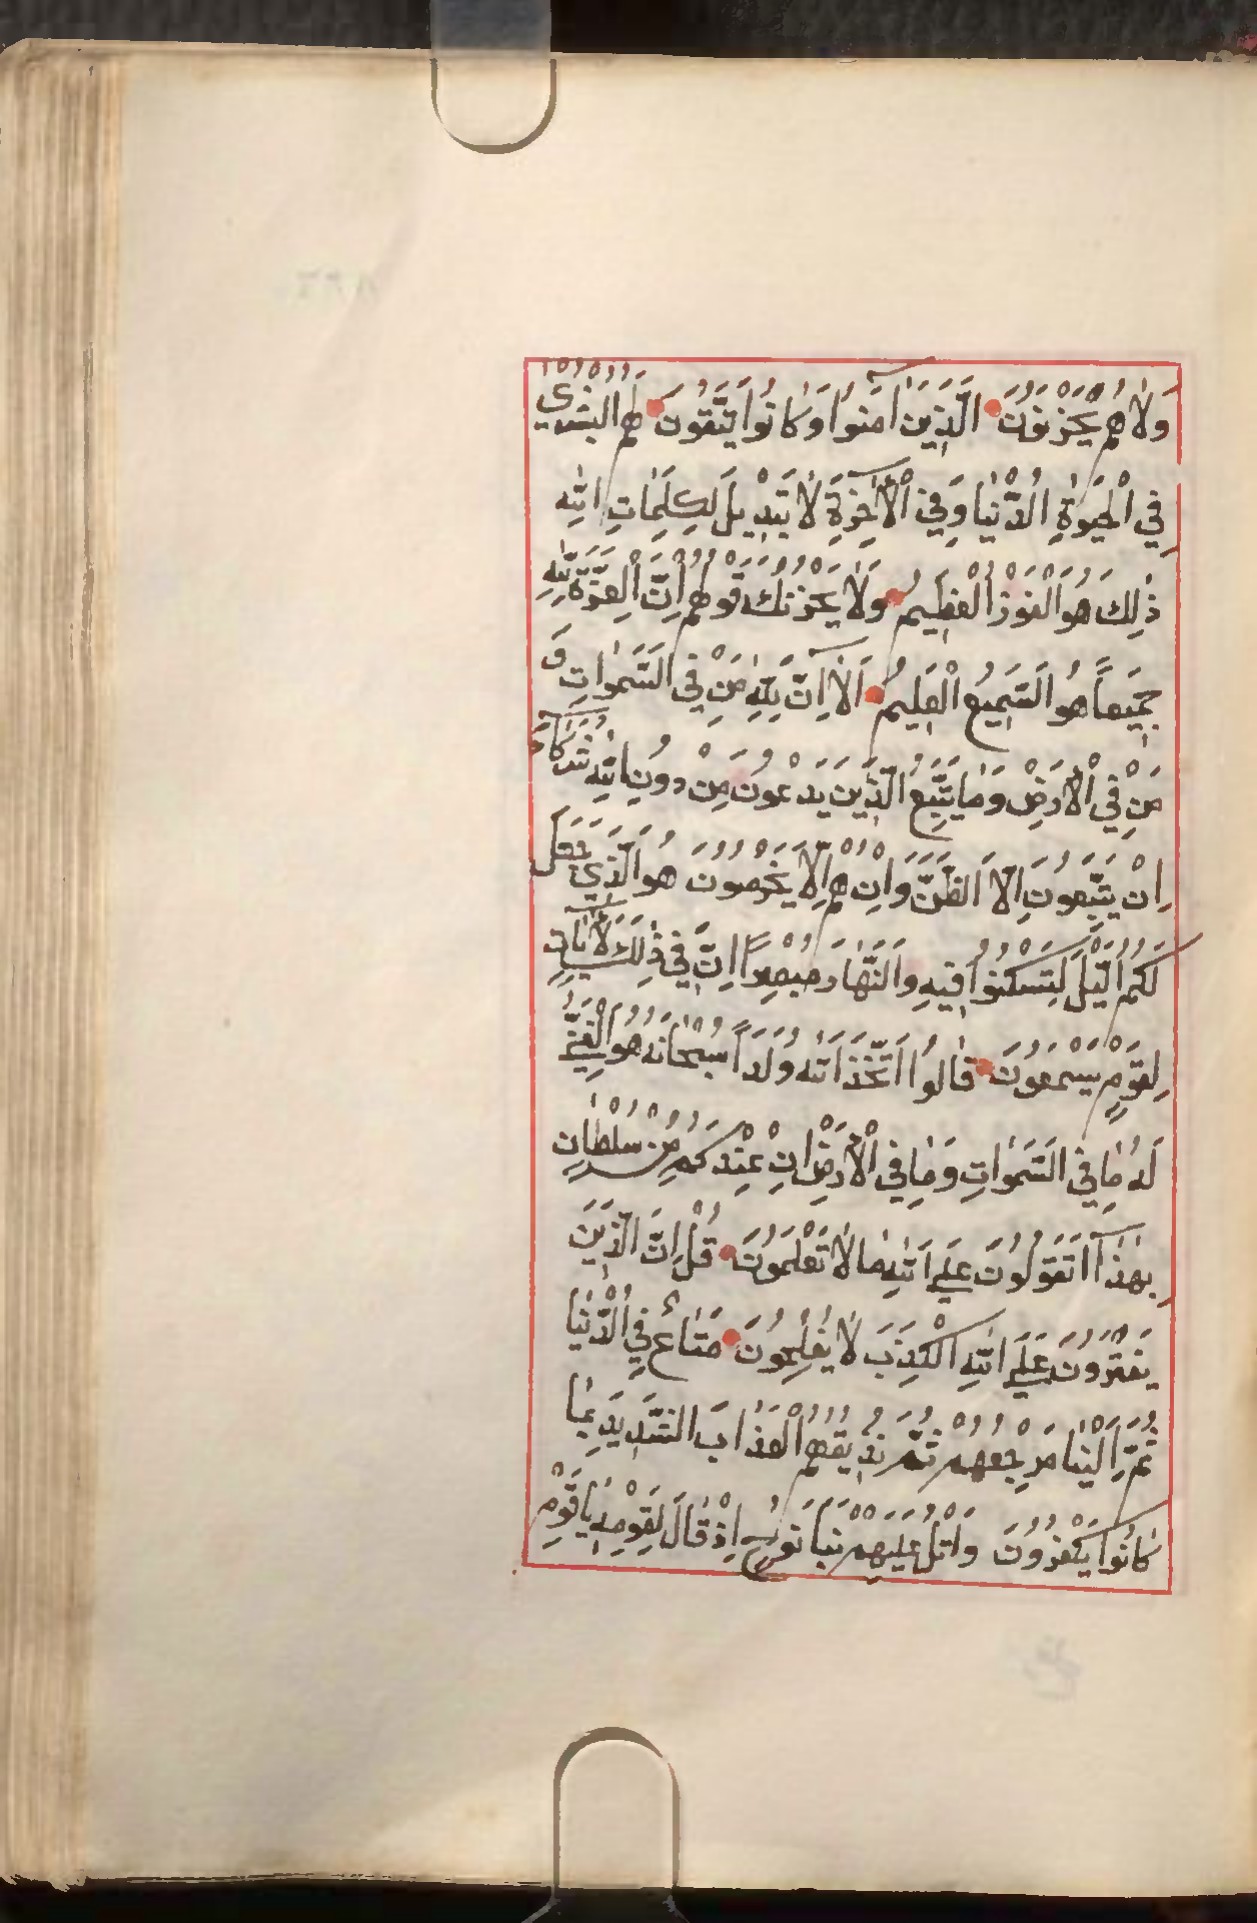 وَلَا هُمْ يَحْزَنُونَ الَّذِينَ آمَنُوا وَكَانُوا يَتَّقُونَ لَهُمُ الْبُشْرٰي
فِي الْحَيٰوةِ الدُّنْيَا وَفِي الْآخِرَةِ لَا تَبْدِيلَ لِكَلِمَاتِ اللّٰهِ
ذٰلِكَ هُوَ الْفَوْزُ الْعَظِيمُ وَلَا يَحْزُنْكَ قَوْلُهُمْ اِنَّ الْعِزَّةَ لِلّٰهِ
جَمِيعاً هُوَ السَّمِيعُ الْعَلِيمُ اَلَا اِنَّ لِلّٰهِ مَنْ فِي السَّمٰوَاتِ وَ
مَنْ فِي الْاَرْضِ وَمَا يَتَّبِعُ الَّذِينَ يَدْعُونَ مِنْ دُونِ اللّٰهِ شُرَكَآءَ
اِنْ يَتَّبِعُونَ اِلَّا الظَّنَّ وَاِنْ هُمْ اِلَّا يَخْرُصُونَ هُوَ الَّذِي جَعَلَ
لَكُمُ الَّيْلَ لِتَسْكُنُوا فِيهِ وَالنَّهَارَ مُبْصِراً اِنَّ فِي ذٰلِكَ لَاٰيَاتٍ
لِقَوْمٍ يَسْمَعُونَ قَالُوا اتَّخَذَ اللّٰهُ وَلَداً سُبْحَانَهُ هُوَ الْغَنِيُّ
لَهُ مَا فِي السَّمٰوَاتِ وَمَا فِي الْاَرْضِ اِنْ عِنْدَكُمْ مِنْ سُلْطَانٍ
بِهٰذَا اَتَقُولُونَ عَلَي اللّٰهِ مَا لَا تَعْلَمُونَ قُلْ اِنَّ الَّذِينَ
يَفْتَرُونَ عَلَي اللّٰهِ الْكَذِبَ لَا يُفْلِحُونَ مَتَاعٌ فِي الدُّنْيَا
ثُمَّ اِلَيْنَا مَرْجِعُهُمْ ثُمَّ نُذِيقُهُمُ الْعَذَابَ الشَّدِيدَ بِمَا
كَانُوا يَكْفُرُونَ وَاتْلُ عَلَيْهِمْ نَبَاَ نُوحٍ اِذْ قَالَ لِقَوْمِهِ يَا قَوْمِ